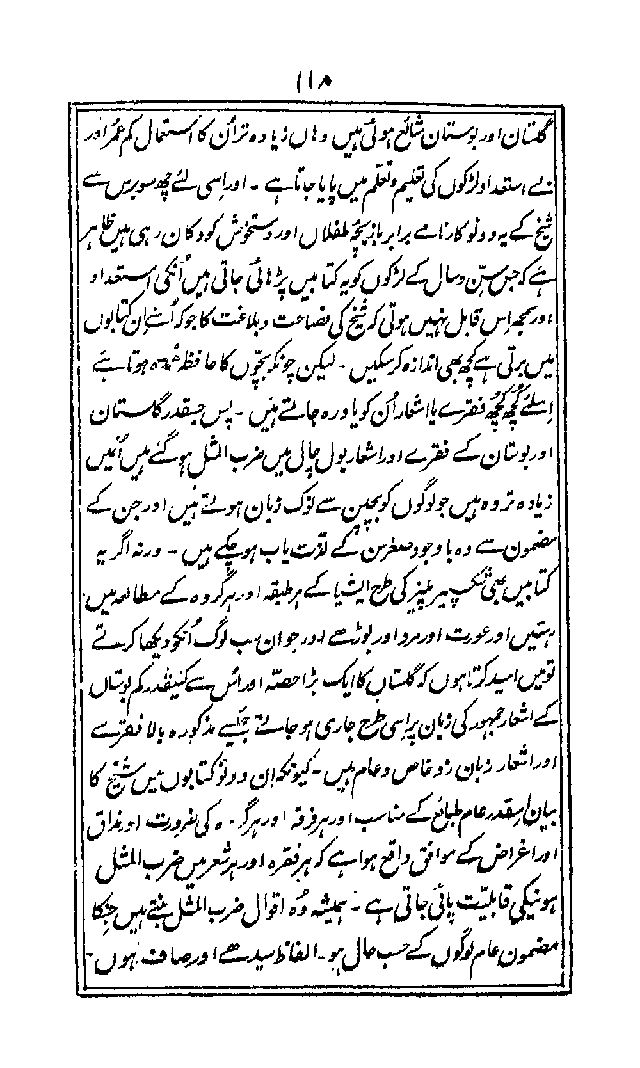 ۱۱۸
گلستان اور بوستان شائع ہوئی ہیں وہاں زیادہ تر ان کا استعمال کم عمر اور
بے استعداد لڑکوں کی تعلیم و تعلم میں پایا جاتا ہے ۔ اور اسی لئے چھ سو برس سے
شیخ کے یہ دونو کارنامے برابر بازیچۂ طفلاں اور دستخوش کودکان رہی ہیں ظاہر
ہے کہ جس سن و سال کے لڑکوں کو یہ کتابیں پڑھائی جاتی ہیں اُنکی استعداد
اور سمجھ اِس قابل نہیں ہوتی کہ شیخ کی فصاحت و بلاغت کا جو کہ اُسنے اِن کتابوں
میں برتی ہے کچھ بھی اندازہ کر سکیں ۔ لیکن چونکہ بچّوں کا حافظہ عمدہ ہوتا ہے
اِسلئے کچھ کچھ فقرے یا اشعار اُن کو یاد رہ جاتے ہیں ۔ پس جسقدر گلستان
اور بوستان کے فقرے اور اشعار بول چال میں ضرب المثل ہو گئے ہیں اُنمیں
زیادہ تر وہ ہیں جو لوگوں کو بچپن سے نوک زبان ہوتے ہیں اور جن کے
مضمون سے وہ باوجود صغر سن کے لذت یاب ہو چکے ہیں ۔ ورنہ اگر یہ
کتابیں بھی شکسپیر پلیز کی طرح ایشیا کے ہر طبقہ اور ہر گروہ کے مطالعہ میں
رہتیں اور عورت اور مرد اور بوڑھے اور جوان سب لوگ اُنکو دیکھا کرتے
تو میں امید کرتا ہوں کہ گلستاں کا ایک بڑا حصّہ اور اُس سے کسیقدر کم بوستاں
کے اشعار جمہور کی زبان پر اسی طرح جاری ہو جاتے جیسے مذکورہ بالا فقرے
اور اشعار زبان زد خاص و عام ہیں ۔ کیونکہ ان دونو کتابوں میں شیخ کا
بیان اِسقدر عام طبائع کے مناسب اور ہر فرقہ اور ہر گروہ کی ضرورت اور مذاق
اور اغراض کے موافق واقع ہوا ہے کہ ہر فقرہ اور ہر شعر میں ضرب المثل
ہونیکی قابلیّت پائی جاتی ہے ۔ ہمیشہ وُہ اقوال ضرب المثل بنتے ہیں جنکا
مضمون عام لوگوں کے حسب حال ہو ۔ الفاظ سیدھے اور صاف ہوں ۔